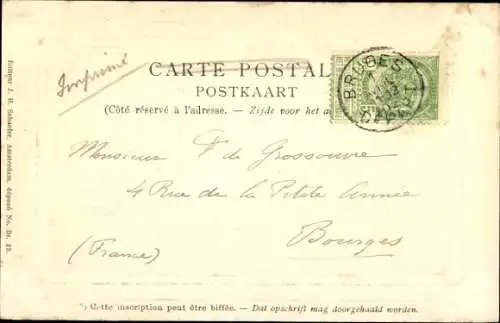 Imprimé
CARTE POSTAL
POSTKAART
(Côté réservé à l'adresse. — Zijde voor het a
BRUGES
Monsieur F de Grossouvre
4 Rue de la Petite Armée
Bourges
(France)
Cette inscription peut être biffée. — Dat opschrift mag doorgehaald worden.
Editeur J. H. Schaefer, Amsterdam, déposé No. Br. 23.